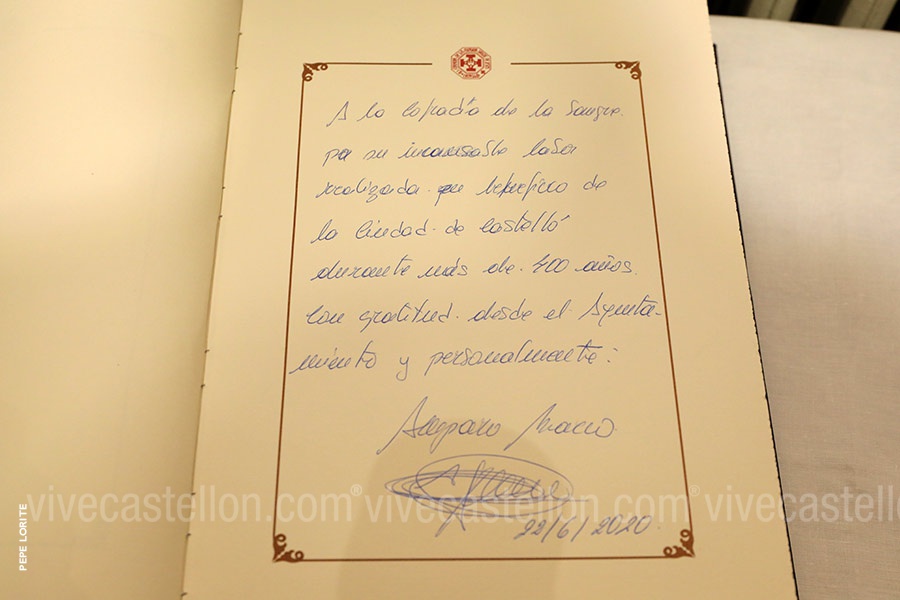 A la Cofradía de la Sangre.
por su incansable labor
realizada en beneficio de
la Ciudad de Castelló
durante más de 400 años.
Con gratitud desde el Ayunta-
miento y personalmente:
Amparo Marco
22/6/2020
vivecastellon.com® vivecastellon.com® vivecastellon
PEPE LORITE